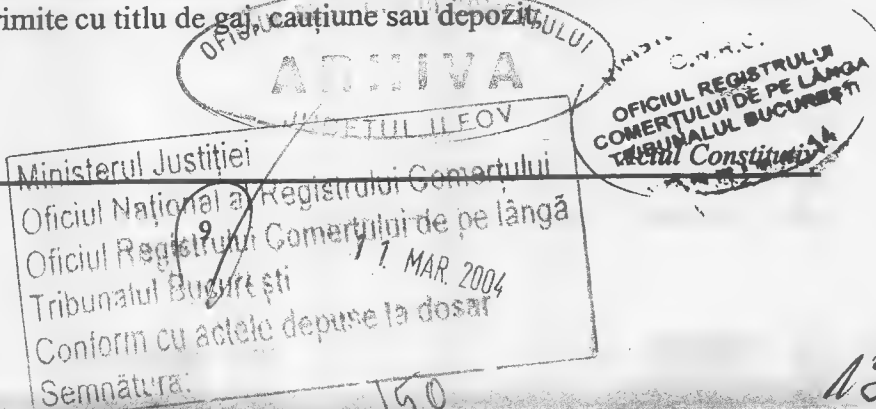 rimite cu titlu de gaj, cauțiune sau depozit;
OFICIUL REGISTRULUI
ARHIVA
JUDEȚUL ILFOV
C.N.R.C.
OFICIUL REGISTRULUI
COMERȚULUI DE PE LÂNGA
TRIBUNALUL BUCUREȘTI
Constitutiv
9
Ministerul Justiției
Oficiul Național al Registrului Comerțului
Oficiul Registrului Comerțului de pe lângă
Tribunalul București
11. MAR. 2004
Conform cu actele depuse la dosar
Semnătura:
150